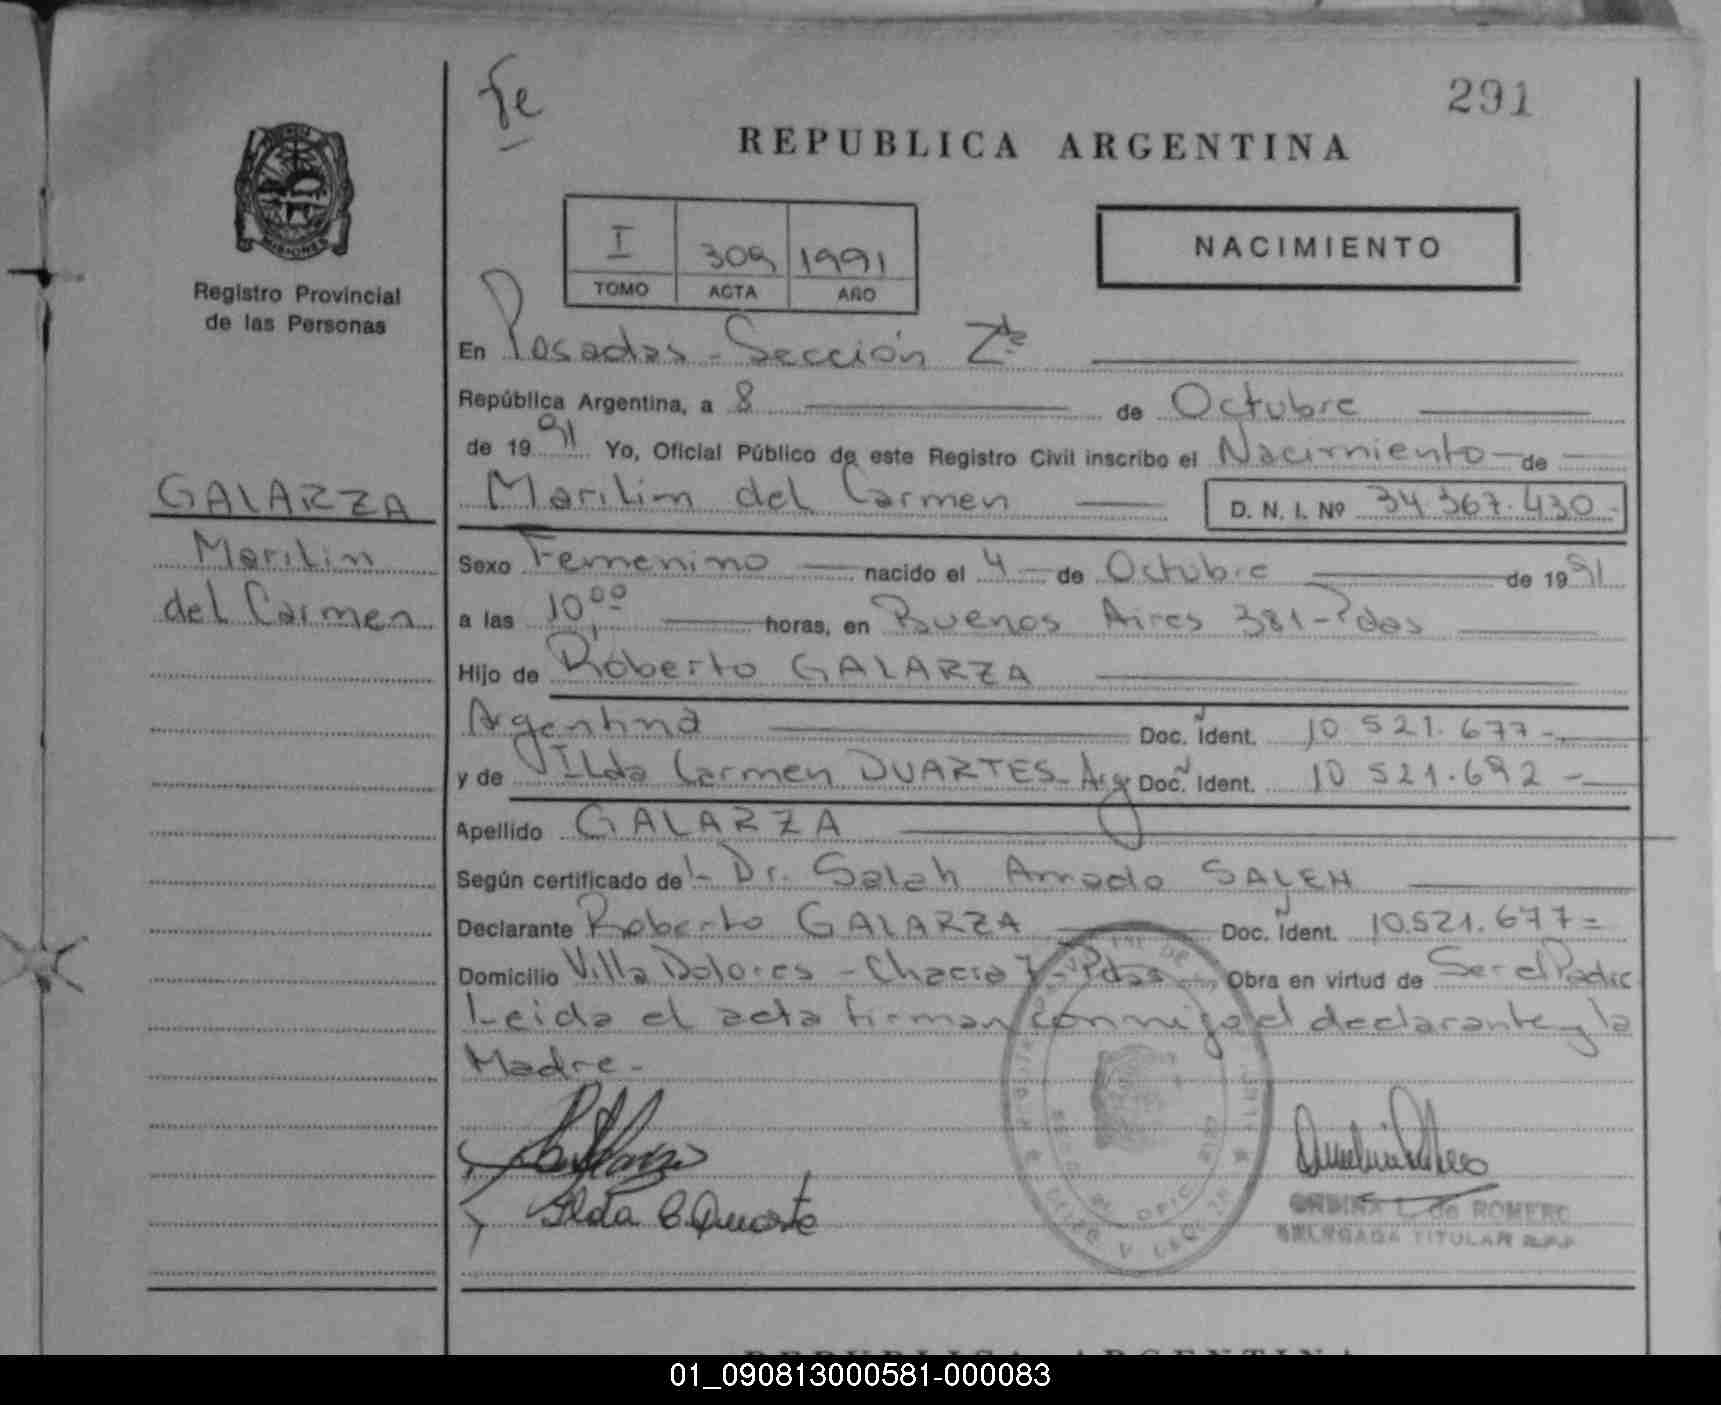 fe
291
REPUBLICA ARGENTINA
I 309 1991
TOMO ACTA AÑO
NACIMIENTO
MISIONES
Registro Provincial
de las Personas
En Posadas - Sección
República Argentina, a 8 de Octubre
de 1991 Yo, Oficial Público de este Registro Civil inscribo el Nacimiento de
Marilin del Carmen D. N. I. Nº 34.367.430.-
GALARZA
Marilin
del Carmen
Sexo Femenino nacido el 4 de Octubre de 1991
a las 10,00 horas, en Buenos Aires 381-Pdas
Hijo de Roberto GALARZA
Argentina Doc. Ident. 10.521.677-
y de Ilda Carmen DUARTES-Arg Doc. Ident. 10.521.692-
Apellido GALARZA
Según certificado del- Dr. Salah Amado SALEH
Declarante Roberto GALARZA Doc. Ident. 10.521.677=
Domicilio Villa Dolores - Chacra 7 - Pdas Obra en virtud de Ser el Padre
Leida el acta firman conmigo el declarante y la
Madre-
Ilda C. Duarte
L. de ROMERO
DELEGADA TITULAR R.P.P.
REPUBLICA ARGENTINA
01_090813000581-000083